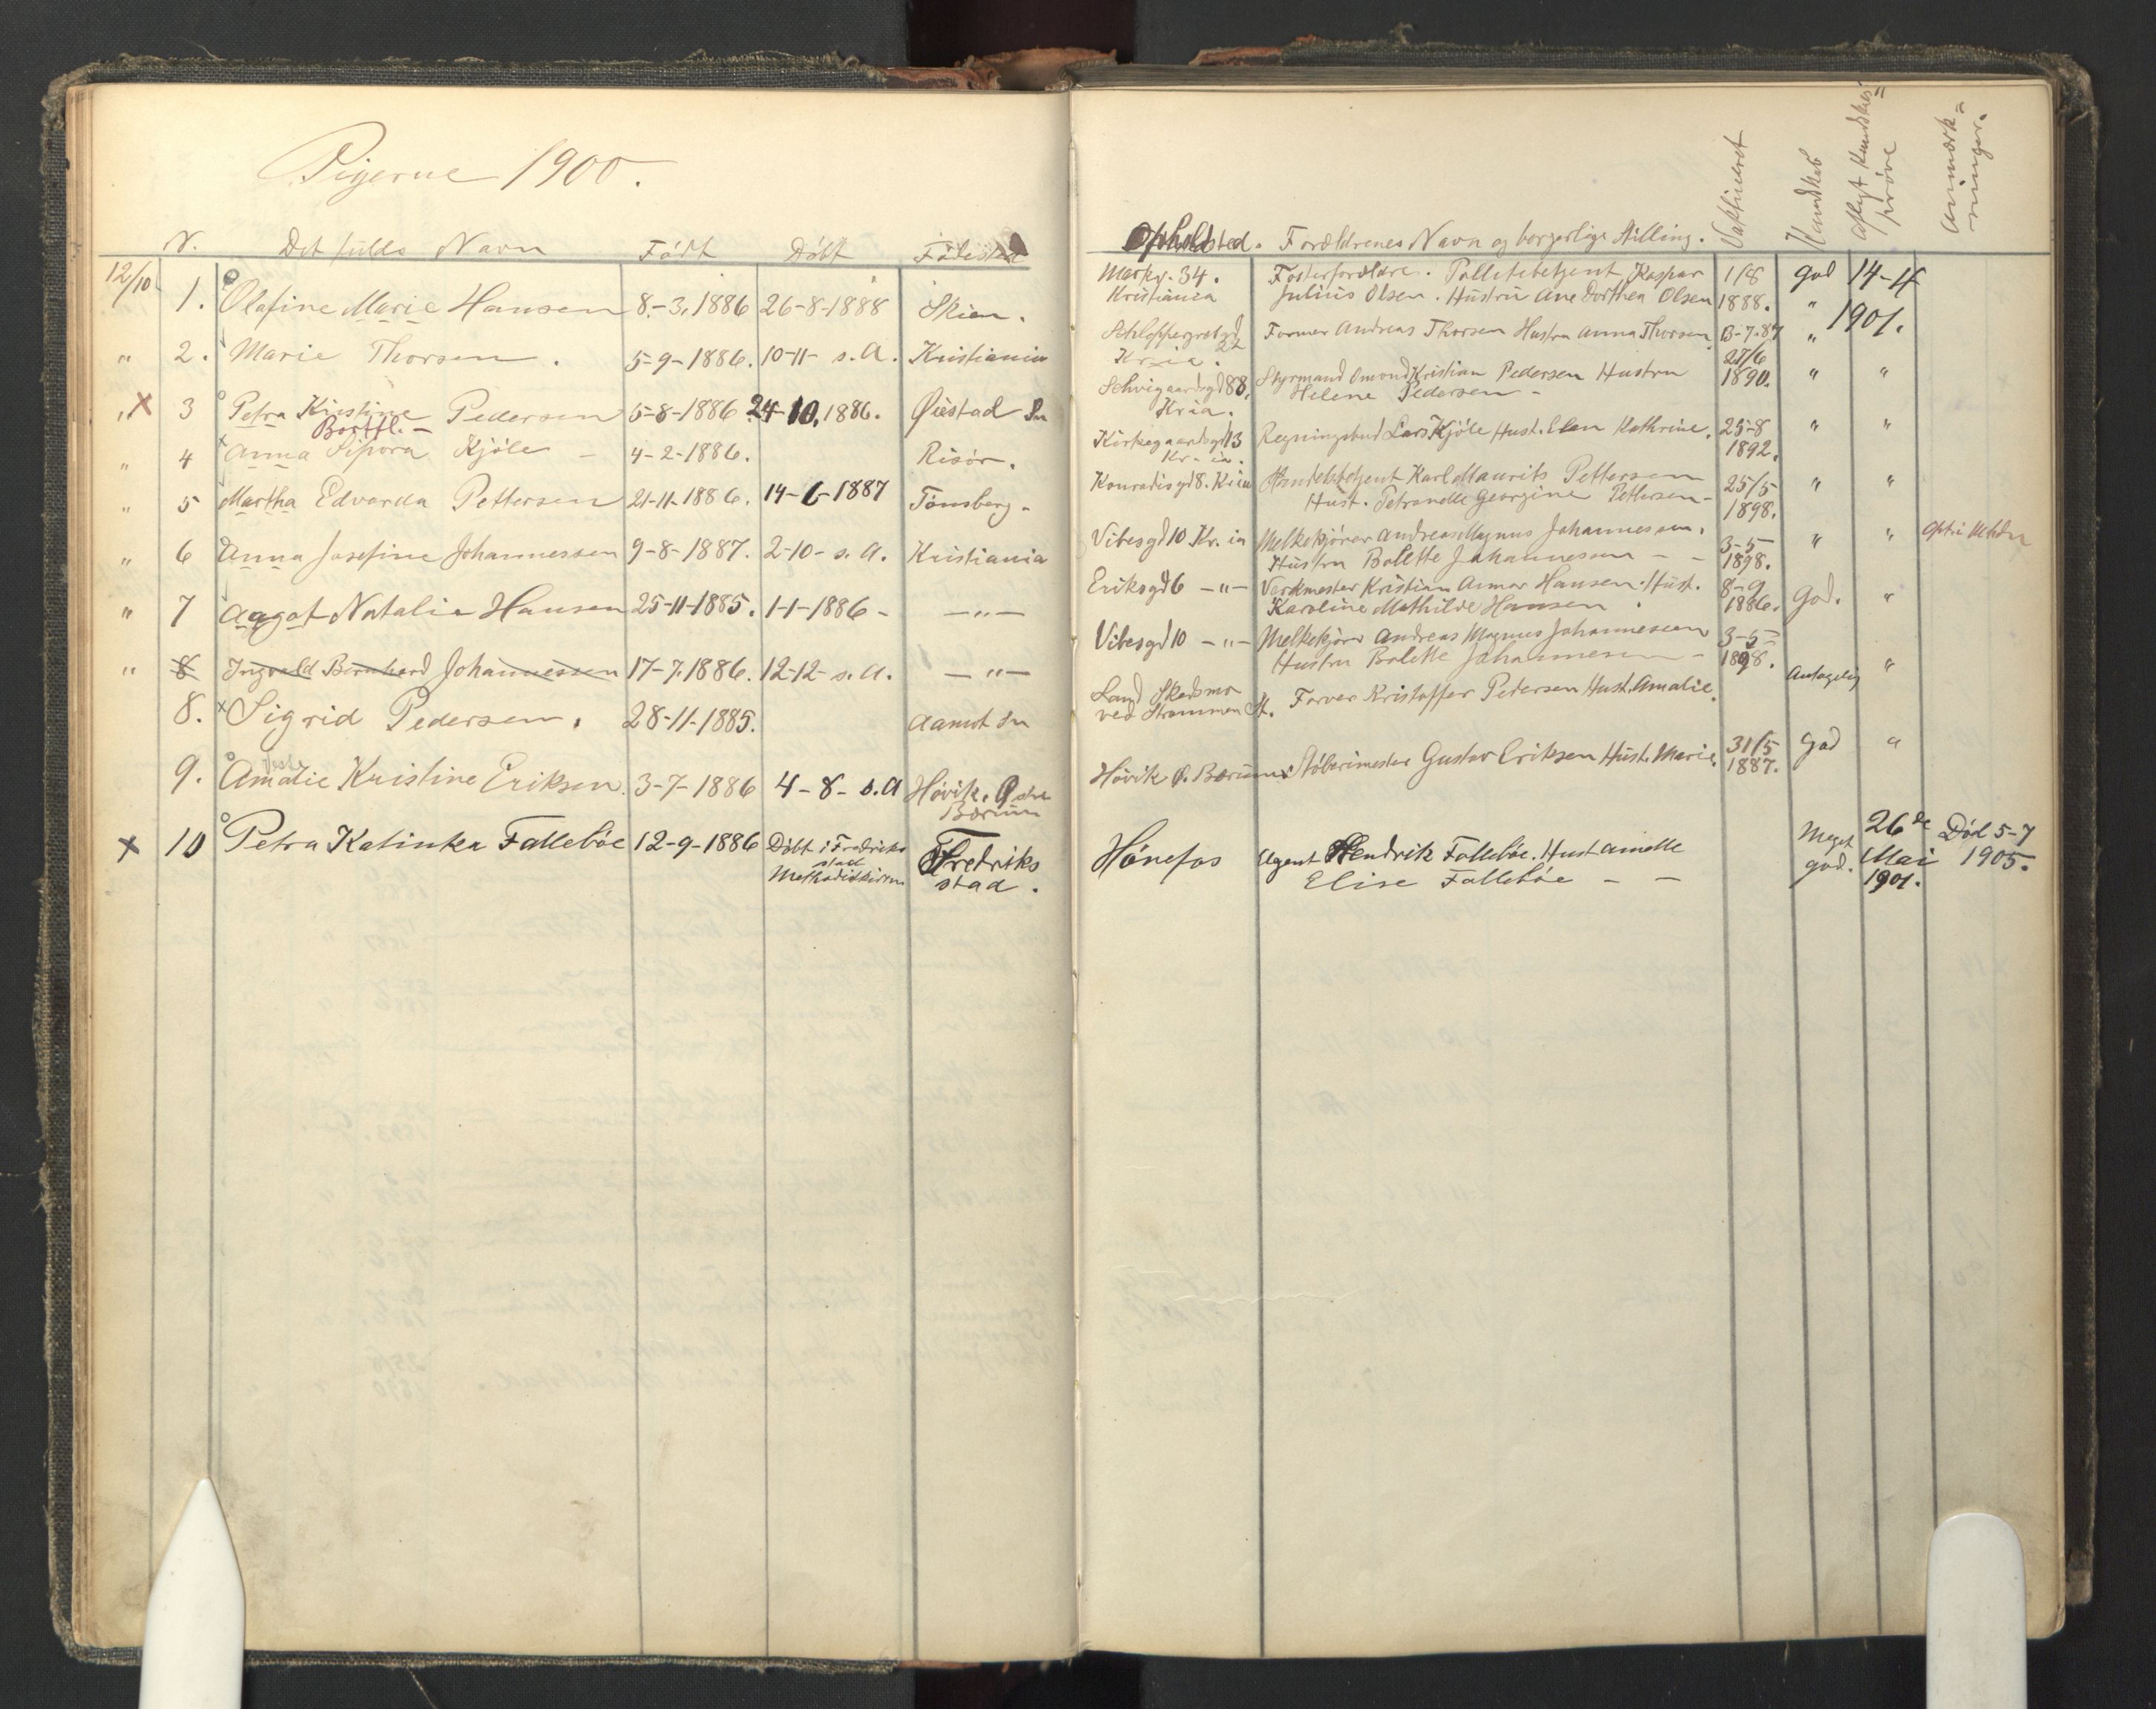 Pigerne 1900.
N. Det fulde Navn Født Døbt Fødested
12/10 1. Olafine Marie Hansen 8-3, 1886 26-8-1888 Skien.
" 2. Marie Thorsen. 5-9-1886. 10-11- s.A. Kristiania
" X 3 Petra Kristine Pedersen 5-8-1886 24-10, 1886. Øiestad Sn
Bortfl. -
" 4 Anna Sipora Kjöle - 4-2-1886. Risör.
" 5 Martha Edvarda Pettersen 21-11-1886. 14-6-1887 Tönsberg.
" 6 Anna Josefine Johannessen 9-8-1887. 2-10- s.A. Kristiania
" 7 Aagot Natalie Hansen 25-11-1885. 1-1-1886 - — " —
" 8 Ingvald Bernhard Johannessen 17-7.1886. 12-12- s.A. — " —
8. Sigrid Pedersen. 28-11-1885. Aamot Sn
9. Amalie Kristine Eriksen. 3-7-1886 4-8- s.A Hövik, Østre
Bærum
X 10 Petra Katinka Falleböe 12-9-1886 Döbt i Fredriks Fredriks
stad
Methodistkirken stad.
Opholdsted. Forældrenes Navn og borgerlige Stilling. Vakcineret Kundskab aflagt Kundskabs= prøve Anmærk= ninger.
Markv. 34. Fosterforældre. Politibetjent Kaspar 1/8 god 14-4
Kristiania Julius Olsen. Hustru Ane Dorthea Olsen 1888. " 1901.
Schleppegrelsgd 22 Former Andreas Thorsen Hustru Anna Thorsen. 13-7.87 "
Kr.ia.
Schweigaardsgd 88, Styrmand Omond Kristian Pedersen Hustru 27/6 1890. " "
Kria. Helene Pedersen -
Kirkegaardsgd 13 Regningsbud Lars Kjöle Hust. Elen Kathrine. 25-8 " "
Kr. ia. 1892.
Konradisgd 8. Kria Karl Maurits Pettersen 25/5 " "
Hust. Petronelle Georgine Pettersen - 1898.
Vibesgd 10 Kr. ia Melkekjörer Andreas Magnus Johannessen. 3-5- " "
Hustru Bolette Johannessen - - 1898.
Eriksgd 6 - " - Verkmester Kristian Anmar Hansen. Hust. 8-9 God. "
Karoline Mathilde Hansen. 1886.
Vibesgd 10 - " - Melkekjörer Andreas Magnus Johannessen 3-5-
Hustru Bolette Johannessen - 1898.
Land Skedsmo Farver Kristoffer Pedersen Hust. Amalie. Antagelig "
ved Strömmen St.
Hövik Ø. Bærum. Stöberimester Gustav Eriksen Hust. Marie. 31/5 God "
1887.
Hönefos Agent Hendrik Falleböe. Hust Amelle Meget 26de Död 5-7
Elise Falleböe - - god. Mai 1905.
1901.